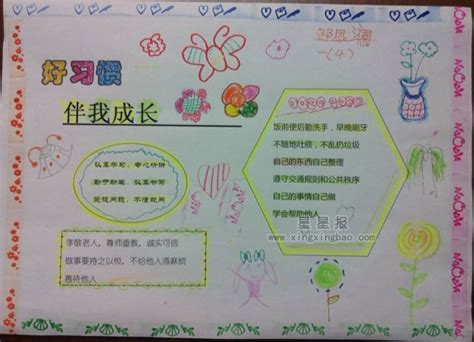 一(4)
好习惯
伴我成长
认真学习，专心听讲
勤于动笔，认真学习
发现问题，不懂就问
饭前便后勤洗手，早晚刷牙
不随地吐痰，不乱扔垃圾
自己的东西自己整理
遵守交通规则和公共秩序
自己的事情自己做
学会帮助他人
星星报
www.xingxingbao.com
孝敬老人，尊师重教，诚实可信
做事要持之以恒，不给他人添麻烦
善待他人